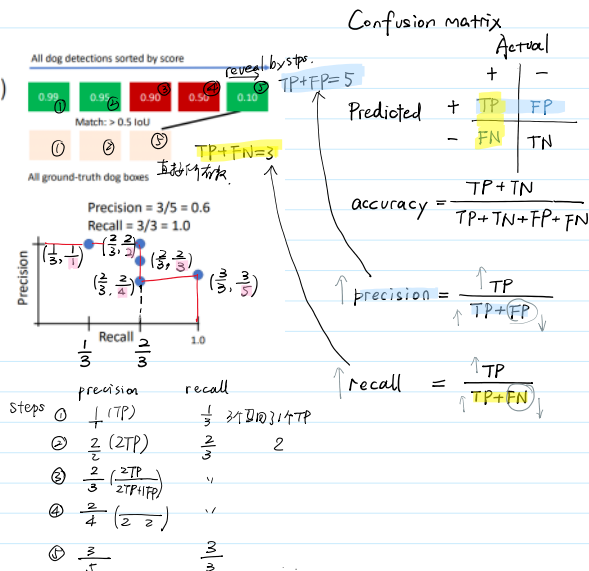 Confusion matrix
Actual
+ -
Predicted + TP FP
- FN TN
accuracy = TP+TN / TP+TN+FP+FN
↑ precision = ↑TP / ↑TP+FP↓
↑ recall = ↑TP / ↑TP+FN↓
)
All dog detections sorted by score
reveal by stps.
0.99 ① 0.95 ② 0.90 ③ 0.50 ④ 0.10 ⑤
TP+FP=5
Match: > 0.5 IoU
① ② ⑤
TP+FN=3
All ground-truth dog boxes
Precision = 3/5 = 0.6
Recall = 3/3 = 1.0
Precision
(1/3, 1/1) (2/3, 2/2)
(2/3, 2/3)
(2/3, 2/4) (3/3, 3/5)
Recall
1/3 2/3 1.0
precision recall
Steps ① 1/1 (TP) 1/3 3个里回到1个TP
② 2/2 (2TP) 2/3 2
③ 2/3 (2TP / 2TP+1FP) "
④ 2/4 ( / 2 2 ) "
⑤ 3/5 3/3